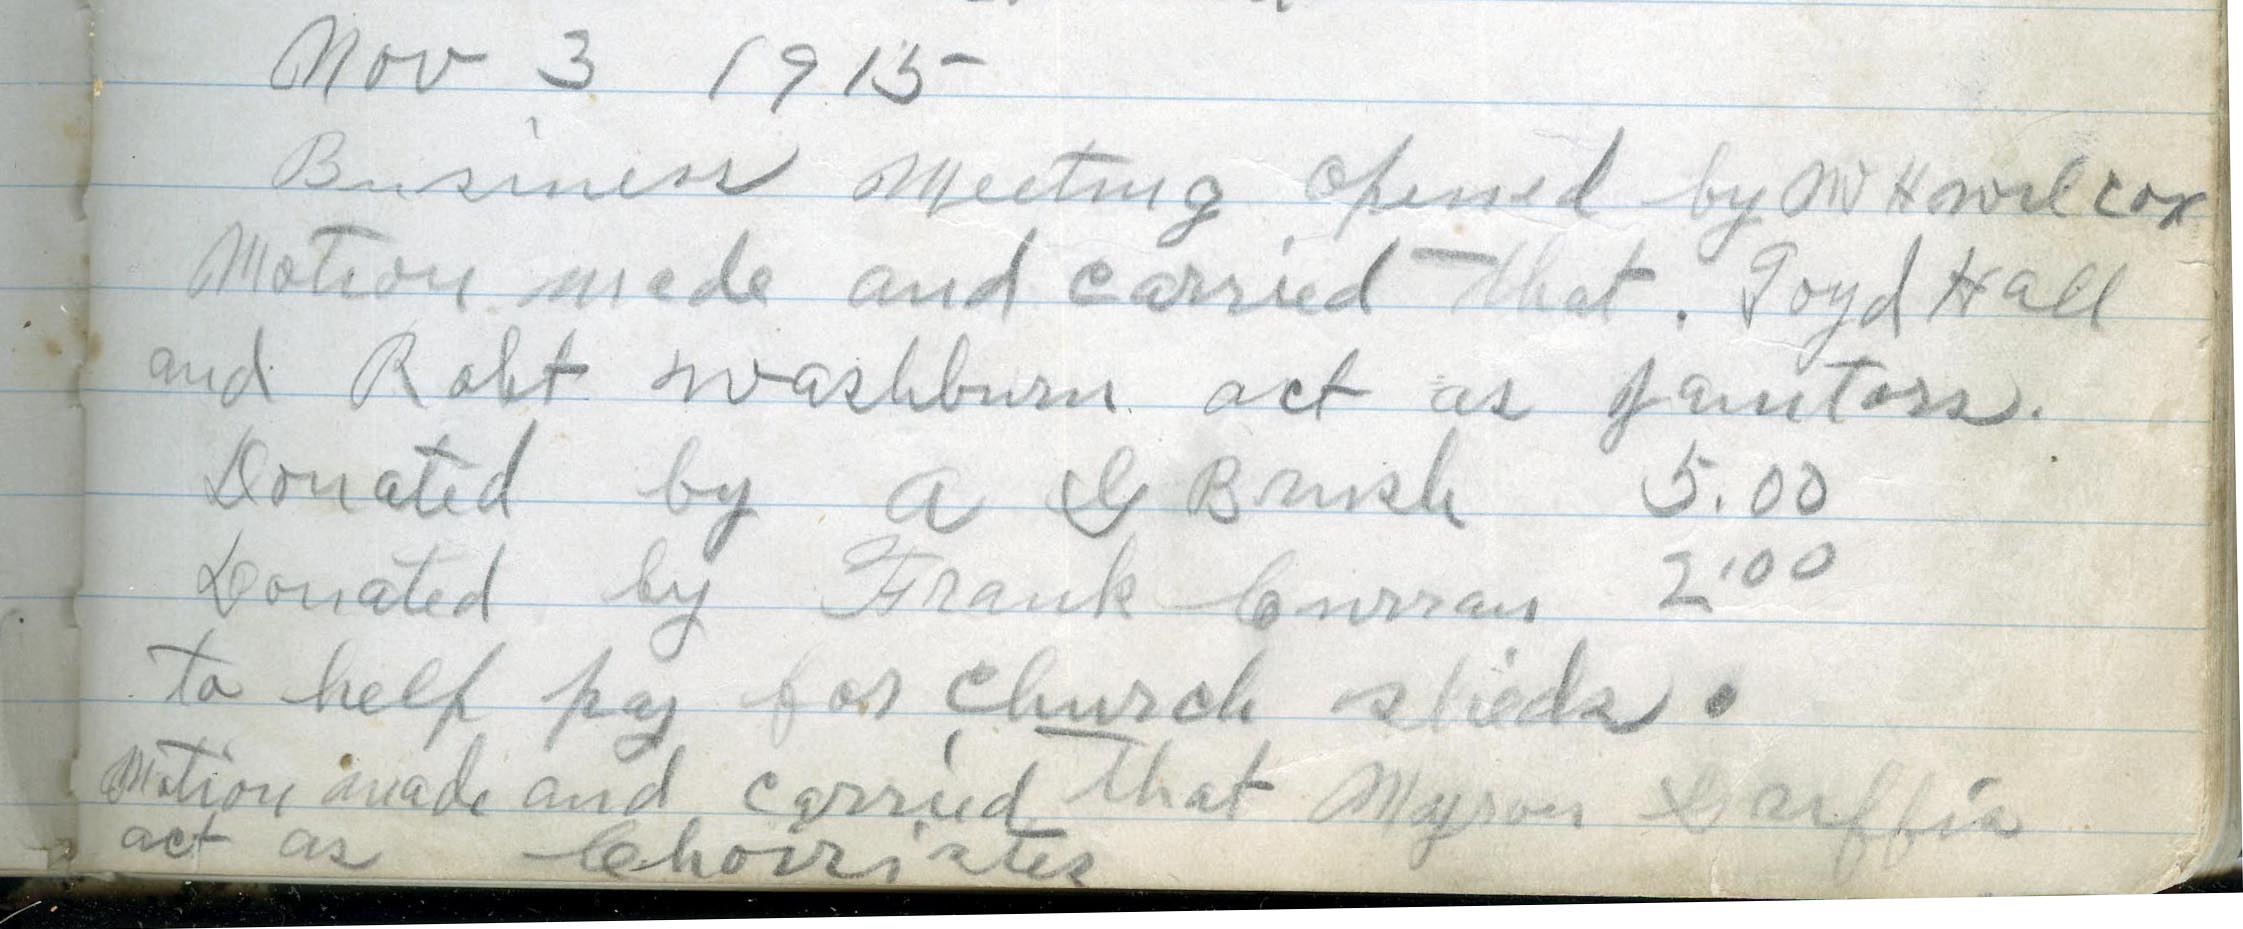 Nov 3 1915
Business Meeting opened by W H Wilcox
Motion made and carried that. Loyd Hall
and Robt Washburn act as janitors.
Donated by A G Brush 5.00
Donated by Frank Curran 2.00
to help pay for church sheds.
Motion made and carried that Myron
act as Chorister